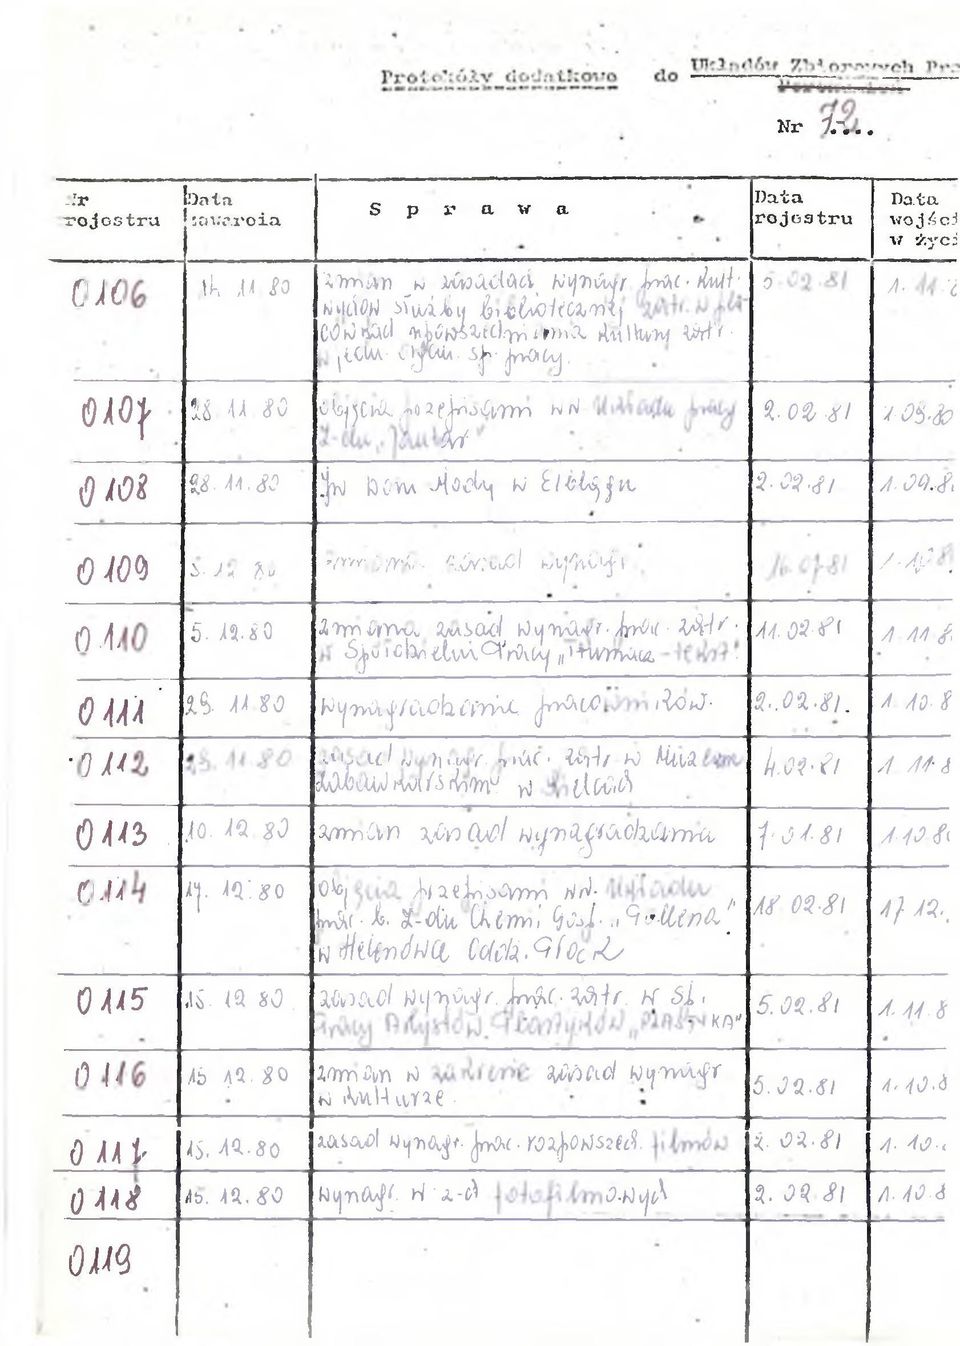 Protokóły dodatkowe do Układów Zbiorowych Pra
Porozumień
Nr 72....
Nr rejestru Data zawarcia S p r a w a Data rejestru Data wejści w życi
0106 14. 11. 80 zmian w zasadach wynagr. prac. kult. 5. 02. 81 1. 11.
wydów służby bibliotecznej zatr. w pla
cówkach upowszechniania kultury zatr.
w jedn. organ. sp. pracy.
0107 28. 11. 80 objęcia przepisami ww Układu pracy 2. 02. 81 1.09.80
Z-du „Jantar"
0108 28. 11. 80 jw Dom Mody w Elblągu 2. 02. 81 1. 09. 8
0109 5. 12. 80 zmiana zasad wynagr. 16. 07. 81 1. 10. 8
0110 5. 12. 80 zmiana zasad wynagr. prac. zatr. 11. 02. 81 1. 11. 8
w Spółdzielni Pracy „Tłumacz-tekst".
0111 29. 11. 80 wynagradzanie pracowników. 2. 02. 81. 1. 10. 8
0112 29. 11. 80 zasad wynagr. prac. zatr. w Muzeum 4. 02. 81 1. 11. 8
Zabawkarskim w Kielcach
0113 10. 12. 80 zmian zasad wynagradzania 7. 01. 81 1.10.8
0114 17. 12. 80 objęcia przepisami ww. Układu 18. 02. 81 17 12.
prac. b. Z-du Chemi Gosp. „Pollena"
w Helenówce Oddz. Płock
0115 15. 12. 80 zasad wynagr. prac. zatr. w Sp. 5. 02. 81 1. 11. 8
Pracy Artystów Plastyków „PLASTYKA"
0116 15. 12. 80 zmian w zakresie zasad wynagr 5. 02. 81 1. 10. 8
w kulturze.
0117 15. 12. 80 zasad wynagr. prac. rozpowszech. filmów 2. 02. 81 1. 10.
0118 15. 12. 80 wynagr. w z-d fotofilmowych 2. 02. 81 1. 10. 8
0119